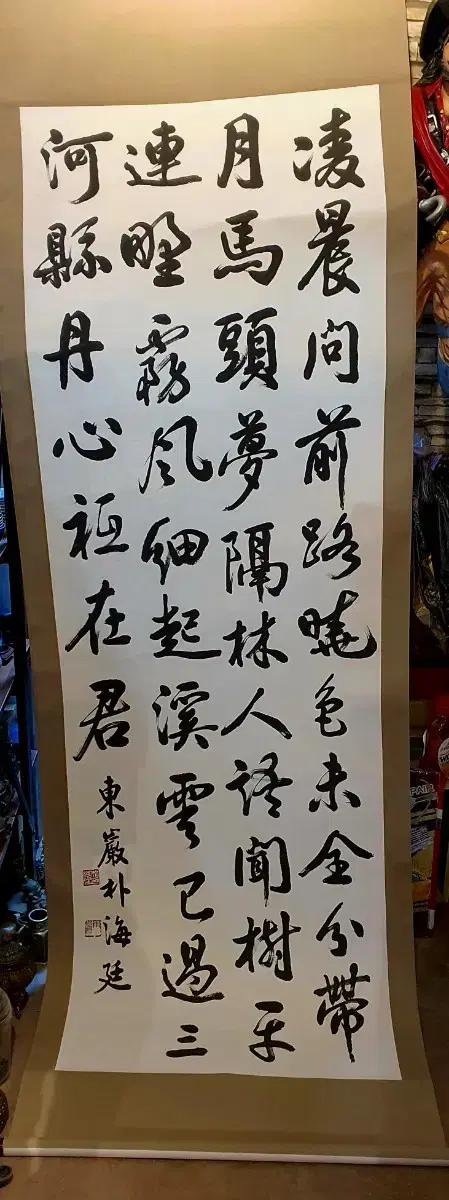 凌晨問前路曉色未全分帶
月馬頭夢隔林人語聞樹平
連野霧風細起溪雲已過三
河縣丹心祗在君
東巖朴海廷